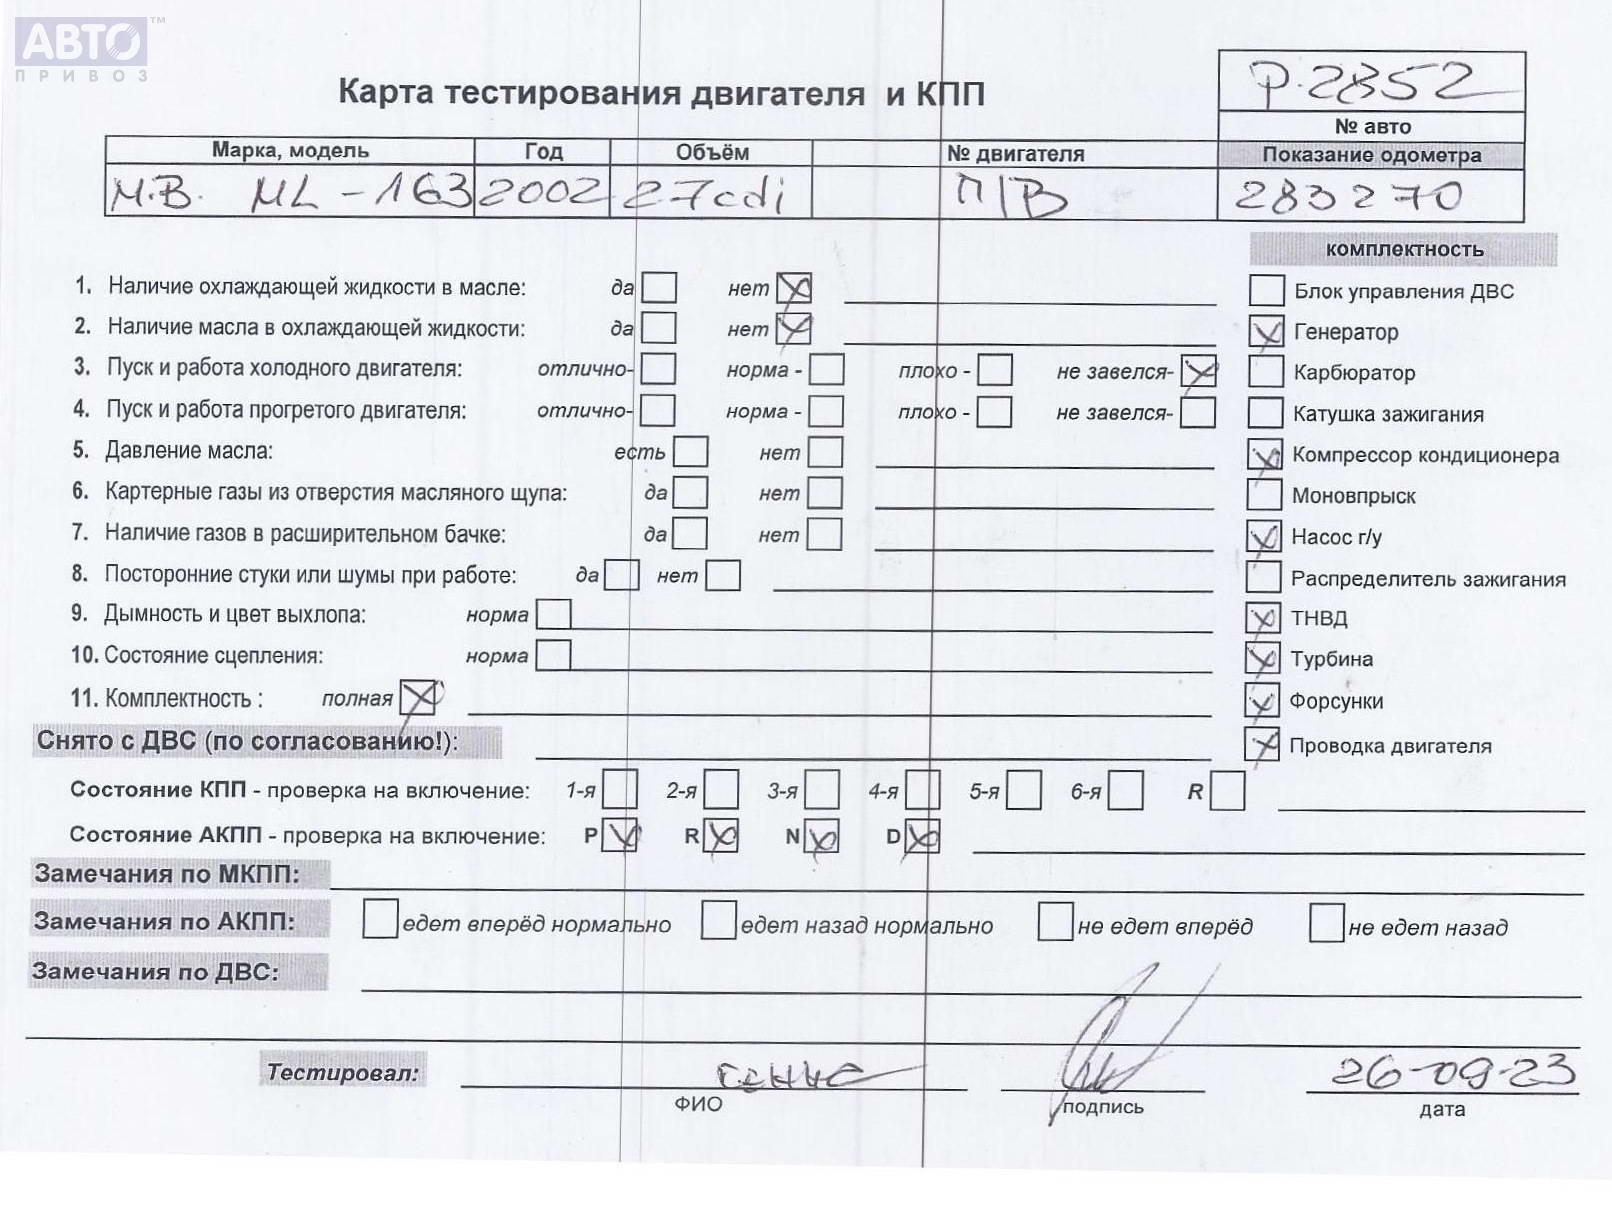 АВТО™
ПРИВОЗ
Р.2852
Карта тестирования двигателя и КПП
№ авто
Марка, модель Год Объём № двигателя Показание одометра
М.В. ML-163 2002 27cdi П/В 283270
комплектность
1. Наличие охлаждающей жидкости в масле: да нет Блок управления ДВС
2. Наличие масла в охлаждающей жидкости: да нет Генератор
3. Пуск и работа холодного двигателя: отлично- норма - плохо - не завелся- Карбюратор
4. Пуск и работа прогретого двигателя: отлично- норма - плохо - не завелся- Катушка зажигания
5. Давление масла: есть нет Компрессор кондиционера
6. Картерные газы из отверстия масляного щупа: да нет Моновпрыск
7. Наличие газов в расширительном бачке: да нет Насос г/у
8. Посторонние стуки или шумы при работе: да нет Распределитель зажигания
9. Дымность и цвет выхлопа: норма ТНВД
10. Состояние сцепления: норма Турбина
11. Комплектность : полная Форсунки
Снято с ДВС (по согласованию!): Проводка двигателя
Состояние КПП - проверка на включение: 1-я 2-я 3-я 4-я 5-я 6-я R
Состояние АКПП - проверка на включение: P R N D
Замечания по МКПП:
Замечания по АКПП: едет вперёд нормально едет назад нормально не едет вперёд не едет назад
Замечания по ДВС:
Тестировал: 26-09-23
ФИО подпись дата